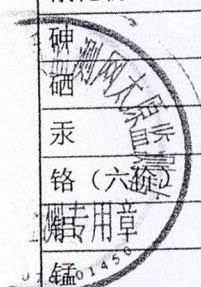 砷
硒
汞
铬（六价）
测网太原监测
专用章
01450
锰